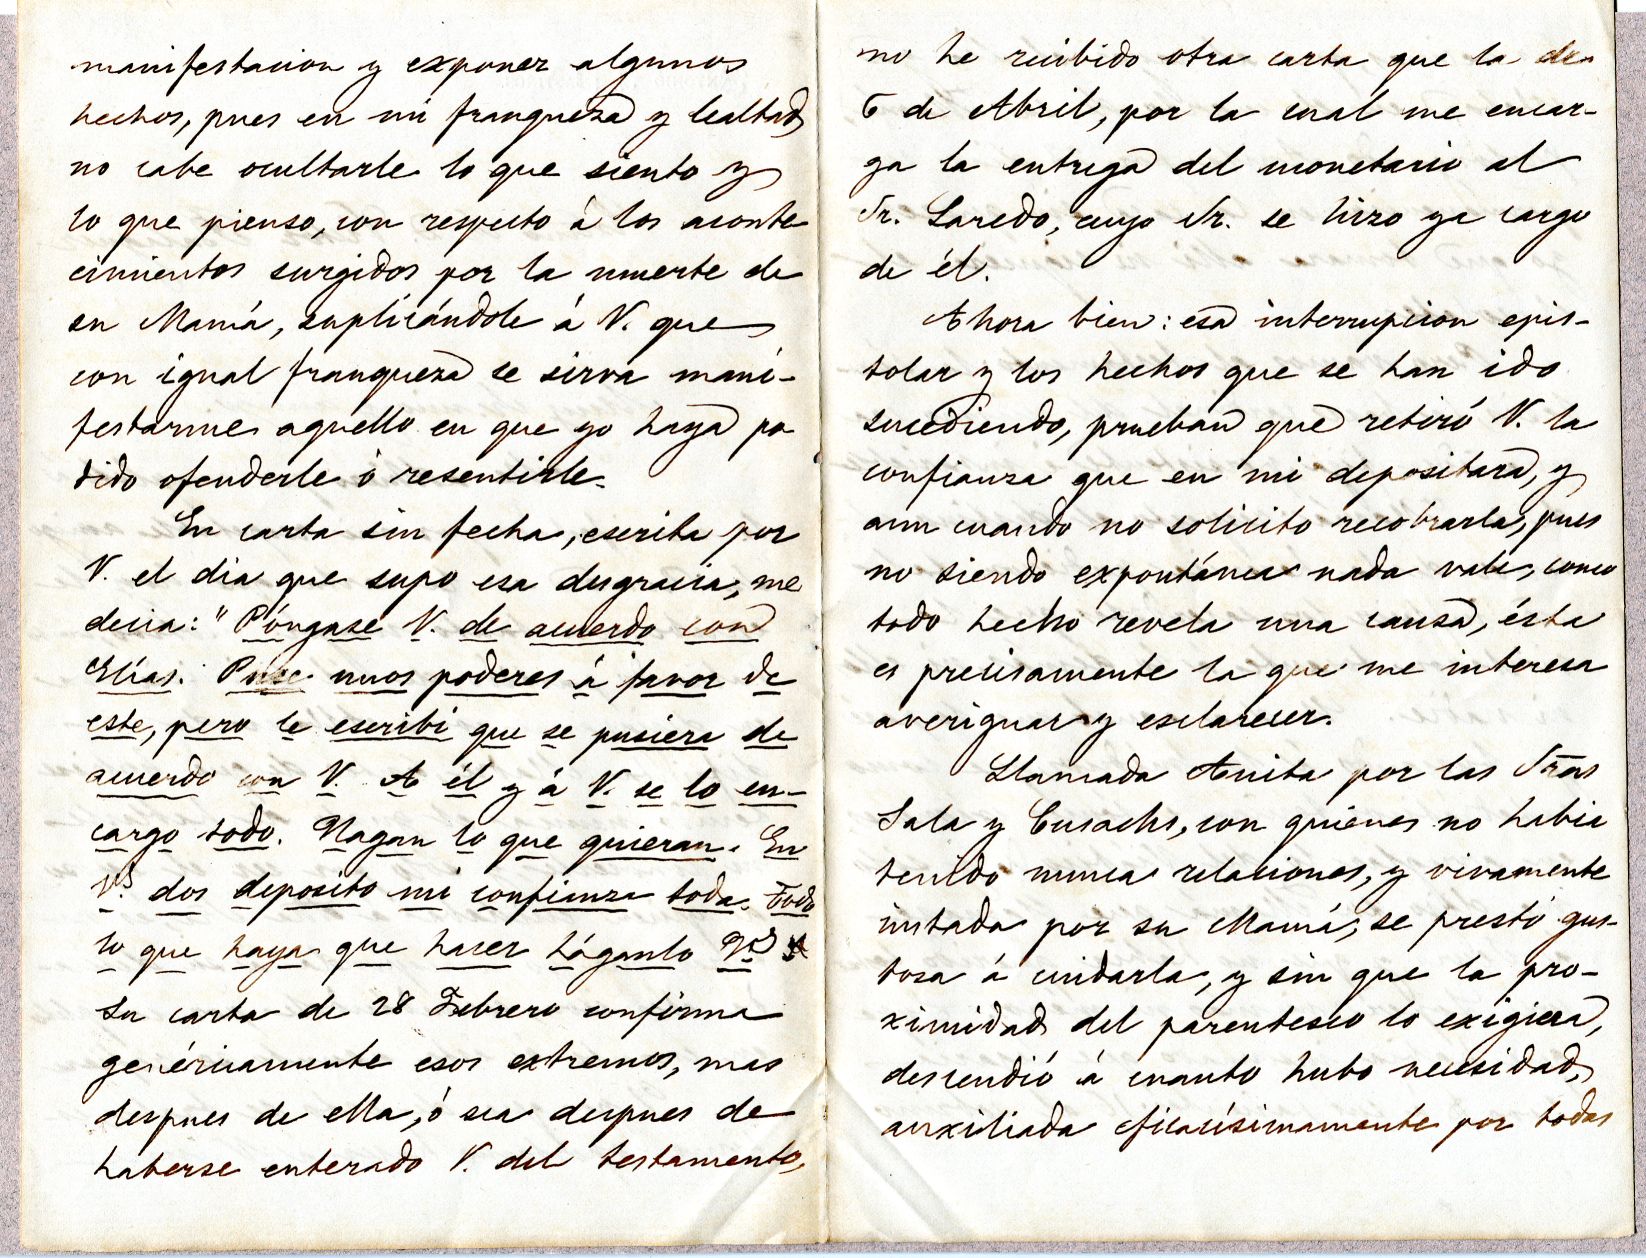 manifestacion y exponer algunos
hechos, pues en mi franqueza y lealtad
no cabe ocultarle lo que siento y
lo que pienso, con respecto á los aconte
cimientos surgidos por la muerte de
su Mamá, suplicándole á V. que
con igual franqueza se sirva mani-
festarme aquello en que yo haya po
dido ofenderle ó resentirle.
En carta sin fecha, escrita por
V. el dia que supo esa desgracia, me
decia: " Póngase V. de acuerdo con
Elías. Puse unos poderes á favor de
este, pero le escribí que se pusiera de
acuerdo con V. A él y á V. se lo en-
cargo todo. Hagan lo que quieran. En
Vs. dos deposito mi confianza toda. Todo
lo que haya que hacer háganlo Vds
Su carta de 28 Febrero confirma
genéricamente esos extremos, mas
despues de ella, ó sea despues de
haberse enterado V. del testamento,
no he recibido otra carta que la de
6 de Abril, por la cual me encar-
ga la entrega del monetario al
Sr. Laredo, cuyo Sr. se hizo ya cargo
de él.
Ahora bien: esa interrupcion epis-
tolar y los hechos que se han ido
sucediendo, prueban que retiró V. la
confianza que en mi depositara, y
aun cuando no solicito recobrarla, pues
no siendo expontánea nada vale, como
todo hecho revela una causa, ésta
es precisamente la que me interesa
averiguar y esclarecer.
Llamada Anita por las Sras
Sala y Cusachs, con quienes no habia
tenido nunca relaciones, y vivamente
instada por su Mamá, se prestó gus-
tosa á cuidarla, y sin que la pro-
ximidad del parentesco lo exigiera,
descendió á cuanto hubo necesidad,
auxiliada eficacísimamente por todas